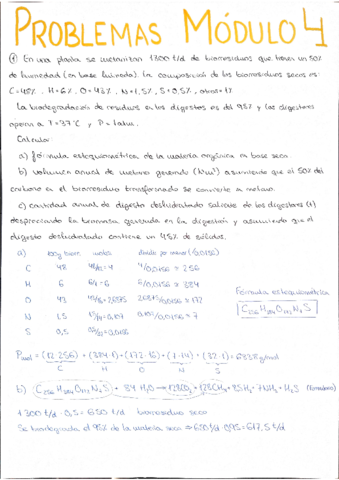 PROBLEMAS MÓDULO 4
① En una planta se metanizan 1300 t/d de biorresiduos que tienen un 50%
de humedad (en base húmeda). La composición de los biorresiduos secos es:
C=48%, H=6%, O=43%, N=1,5%, S=0,5%, otros=1%.
La biodegradación de residuos en los digestores es del 95% y los digestores
operan a T=37ºC y P=1atm.
Calcular
a) fórmula estequiométrica de la materia orgánica en base seca
b) volumen anual de metano generado (Nm³) asumiendo que el 50% del
carbono en el biorresiduo transformado se convierte a metano.
c) cantidad anual de digesto deshidratado saliente de los digestores (t)
despreciando la biomasa generada en la digestión y asumiendo que el
digesto deshidratado contiene un 45% de sólidos.
a) 100g biorr. moles dividir por menor (0,0156)
C 48 48/12=4 4/0,0156=256
H 6 6/1=6 6/0,0156=384
O 43 43/16=2,6875 2,6875/0,0156=172
N 1,5 1,5/14=0,107 0,107/0,0156=7
S 0,5 0,5/32=0,0156
Fórmula estequiométrica
C₂₅₆H₃₈₄O₁₇₂N₇S
Pmol = (12·256)+(384·1)+(172·16)+(7·14)+(32·1)=6338 g/mol
C H O N S
b) C₂₅₆H₃₈₄O₁₇₂N₇S + 84 H₂O → 128CO₂ + 128CH₄ + 7NH₃ + H₂S
1300 t/d · 0,5 = 650 t/d biorresiduo seco
Se biodegrada el 95% de la materia seca ⇒ 650 t/d · 0,95 = 617,5 t/d